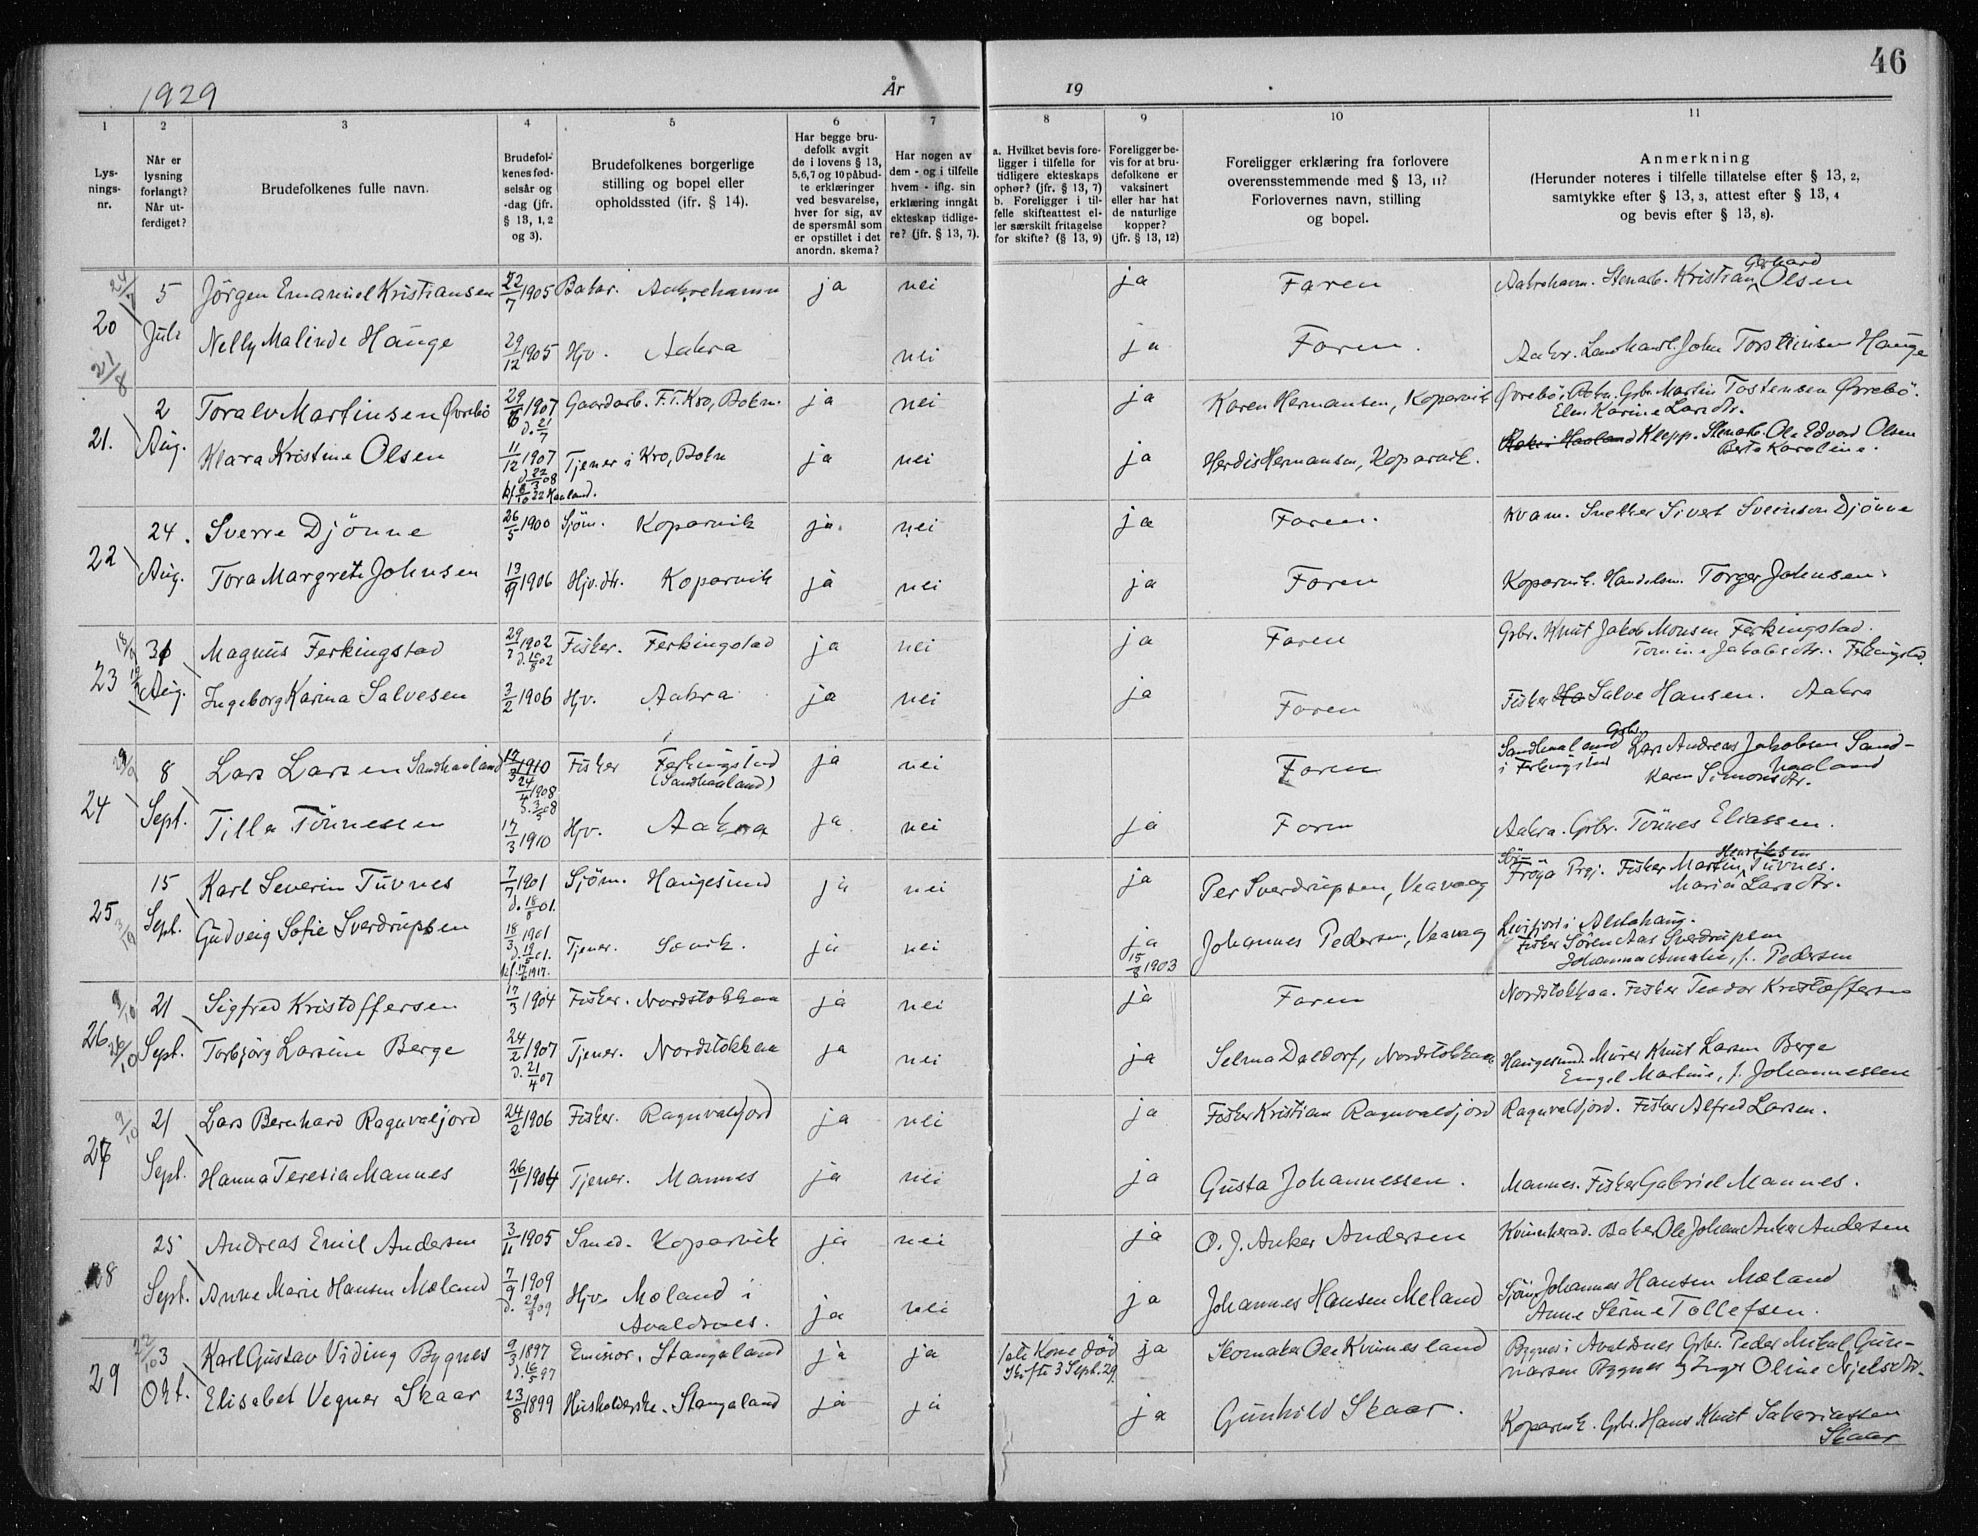 46
1929
År
19
1
2
3
4
5
6
7
8
9
10
11
Lys-
nings-
nr.
Når er
lysning
forlangt?
Når ut-
ferdiget?
Brudefolkenes fulle navn.
Brudefol-
kenes fød-
selsår og
-dag (jfr.
§ 13, 1, 2
og 3).
Brudefolkenes borgerlige
stilling og bopel eller
opholdssted (ifr. § 14).
Har begge bru-
defolk avgit
de i lovens § 13,
5,6,7 og 10 påbud-
te erklæringer
ved besvarelse,
hver for sig, av
de spørsmål som
er opstillet i det
anordn. skema?
Har nogen av
dem - og i tilfelle
hvem - iflg. sin
erklæring inngåt
ekteskap tidlige-
re? (jfr. § 13, 7).
a. Hvilket bevis fore-
ligger i tilfelle for
tidligere ekteskaps
ophør? (jfr. § 13, 7)
b. Foreligger i til-
felle skifteattest el-
ler særskilt fritagelse
for skifte? (§ 13, 9)
Foreligger be-
vis for at bru-
defolkene er
vaksinert
eller har hat
de naturlige
kopper?
(jfr. § 13, 12)
Foreligger erklæring fra forlovere
overensstemmende med § 13, 11?
Forlovernes navn, stilling
og bopel.
Anmerkning
(Herunder noteres i tilfelle tillatelse efter § 13, 2,
samtykke efter § 13, 3, attest efter § 13, 4
og bevis efter § 13, 8).
20 24/7 5 Jörgen Emanuel Kristiansen 22/7 1905 Baker. Aakrehamn ja nei ja Faren Aakrehavn. Stenarb. Kristian Gerhard Olsen
Juli Nelly Malinde Hauge 29/12 1905 Hjv. Aakra nei ja Faren. Aakr. Landhandl. John Torsteinsen Hauge
21. 21/8 2 Toralv Martinsen Øvrebö 29/6 1907 d. 21/7 Gaardarb. F.T. Kro, Bokn. ja nei ja Karen Hermansen, Kopervik Øvrebö i Bokn. Gbr. Martin Tostensen Øvrebö.
Elen Karine Larsdtr.
Aug. Klara Kristine Olsen 11/12 1907 d 22/3 08 Tjener i Kro, Bokn ja nei ja Herdis Hermansen, Kopervik. Klepp. Stenarb. Ole Edvard Olsen
kf 8/10 22 Haaland. Berte Karoline.
22 24. Sverre Djönne 26/5 1900 Sjöm. Kopervik ja. nei ja Faren. Kvam. Snekker Sivert Sveinson Djönne
Aug. Tora Margrete Johnsen 13/9 1906 Hjv. dtr. Kopervik ja nei ja Faren Kopervik. Handelsm. Torger Johnsen.
23 18/9 31 Magnus Ferkingstad 29/7 1902 d. 10/8 02 Fisker. Ferkingstad ja nei ja Faren Gbr. Knut Jakob Monsen Ferkingstad.
Tomine Jakobsdtr. Ferkingstad.
Aug. Ingeborg Karina Salvesen 3/2 1906 Hjv. Aakra ja nei ja Faren Fisker Salve Hansen. Aakra
24 8 Lars Larsen Sandhaaland 17/3 1910 24/4 1908 d. 3/5 08 Fisker Ferkingstad (Sandhaaland) ja nei Faren Sandhaaland i Ferkingstad Gbr. Lars Andreas Jakobsen Sand-
haaland
Karen Simonsdtr.
Sept. Tilla Tönnesen 17/3 1910 Hjv. Aakra ja nei ja Faren Aakra. Gbr. Tönnes Eliassen.
25 3/10 15 Karl Severin Tuvnes 7/7 1901 d. 18/8 01. Sjöm. Haugesund ja nei ja Per Sverdrupsen, Veavaag Sör-Fröya Prgj. Fisker Martin Henriksen Tuvnes.
Maria Larsdtr.
Sept. Gudveig Sofie Sverdrupsen 18/3 1901 d. 19/5 01. kf. 17/6 1917. Tjener. Sævik. ja nei ja 15/8 1903 Johannes Pedersen, Veavaag i Alstahaug.
Fisker Sören Aas Sverdrupsen
Johanna Amalie, f. Pedersen
26 9/10 21 Sigfred Kristoffersen 17/3 1904 Fisker. Nordstokkaa ja nei ja Faren Nordstokkaa. Fisker Teodor Kristoffersen
26/10 Sept. Torbjörg Larsine Berge 24/2 1907 d. 21/4 07 Tjener. Nordstokkaa ja nei ja Selma Daldorf, Nordstokkaa Haugesund. Murer Knut Larsen Berge
Engel Martine, f. Johannessen
27 9/10 21 Lars Bernhard Ragnvaljord 24/2 1906 Fisker. Ragnvaldjord ja nei ja Fisker Kristian Ragnvaldjord Ragnvaldjord. Fisker Alfred Larsen.
Sept. Hanna Teresia Mannes 26/1 1904 Tjener. Mannes ja nei ja Gusta Johannessen. Mannes. Fisker Gabriel Mannes.
28 25 Andreas Emil Andersen 3/11 1905 Smed. Kopervik ja nei ja O. J. Anker Andersen Kvinnherad. Baker Ole Johan Anker Andersen
Sept. Anne Marie Hansen Mæland 7/9 1909 d. 29/9 09 Hjv. Mæland i Avaldsnes. ja nei ja Johannes Hansen Meland Sjöm. Johannes Hansen Mæland
Anne Serine Tollefsen.
29 22/10 3 Karl Gustav Viding Bygnes 9/3 1897 d. 16/5 97 Eminor. Stangaland ja ja 1ste Kone död Skifte 3 Sept. 29. ja Skomaker Ole Kvinnesland Bygnes i Avaldsnes Gbr. Peder Mikal Gun-
narsen Bygnes & Inger Oline Njelsdtr.
Okt. Elisabet Vegner Skaar 23/8 1899 Husholderske. Stangaland ja ja ja Gunhild Skaar. Kopervik. Gbr. Hans Knut Sakariassen
Skaar